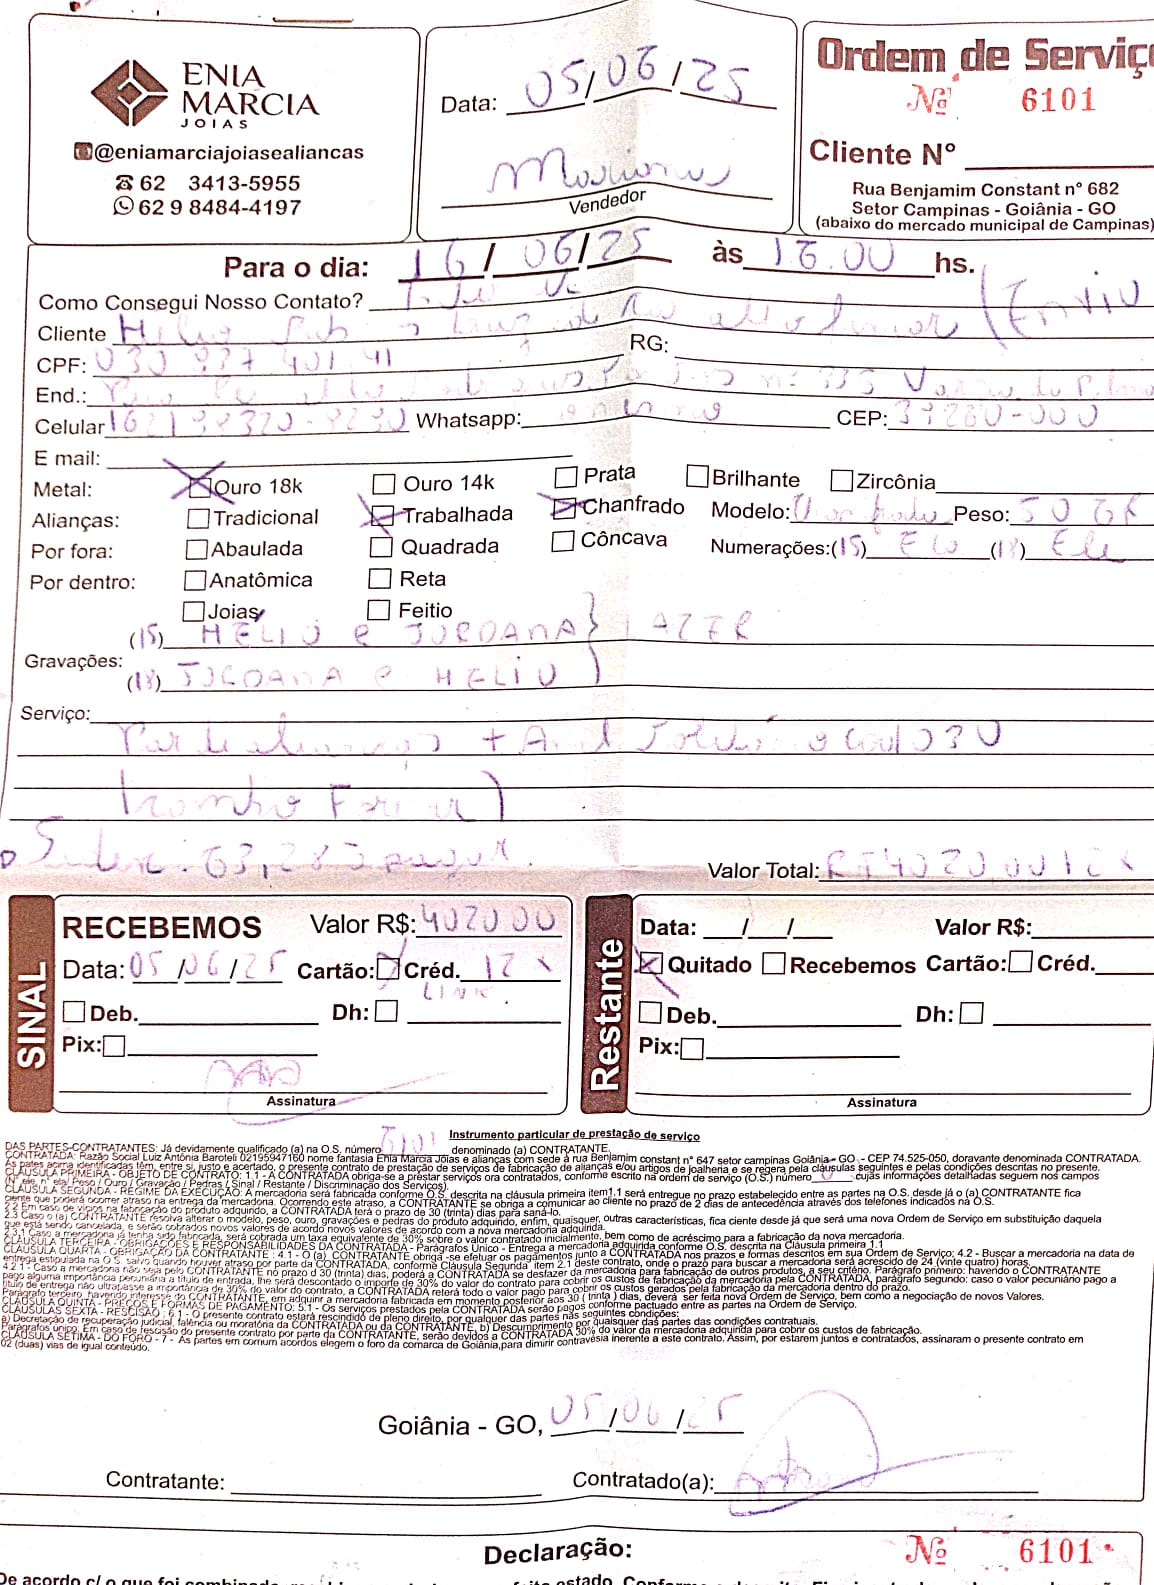 ENIA
MARCIA
JOIAS
@eniamarciajoiasealiancas
62 3413-5955
62 9 8484-4197
Data: 05/06/25
Vendedor
Ordem de Serviç
Nº 6101
Cliente Nº
Rua Benjamim Constant n° 682
Setor Campinas - Goiânia - GO
(abaixo do mercado municipal de Campinas)
Para o dia: 16/06/25 às 16:00 hs.
Como Consegui Nosso Contato?
Cliente
CPF: RG:
End.:
Celular Whatsapp: CEP: 37260-000
E mail:
Metal: Ouro 18k Ouro 14k Prata Brilhante Zircônia
Alianças: Tradicional Trabalhada Chanfrado Modelo: Peso:
Por fora: Abaulada Quadrada Côncava Numerações:(15) Ela (18) Ele
Por dentro: Anatômica Reta
Joias Feitio
(15) HELIO e JORDANA LAZER
Gravações:
(18) JORDANA e HELIO
Serviço:
Valor Total: R$ 4020,00 12x
SINAL
RECEBEMOS Valor R$: 4020 00
Data: 05/06/25 Cartão: Créd. 12x
LINK
Deb. Dh:
Pix:
Assinatura
Restante
Data: / / Valor R$:
Quitado Recebemos Cartão: Créd.
Deb. Dh:
Pix:
Assinatura
Instrumento particular de prestação de serviço
DAS PARTES-CONTRATANTES: Já devidamente qualificado (a) na O.S. número 6101 denominado (a) CONTRATANTE.
CONTRATADA: Razão Social Luiz Antônia Baroteli 02195947160 nome fantasia Enia Marcia Joias e alianças com sede à rua Benjamim constant n° 647 setor campinas Goiânia - GO - CEP 74.525-050, doravante denominada CONTRATADA.
As pates acima identificadas têm, entre si, justo e acertado, o presente contrato de prestação de serviços de fabricação de alianças e/ou artigos de joalheria e se regera pela cláusulas seguintes e pelas condições descritas no presente.
CLÁUSULA PRIMEIRA - OBJETO DE CONTRATO: 1.1 - A CONTRATADA obriga-se a prestar serviços ora contratados, conforme escrito na ordem de serviço (O.S.) número cujas informações detalhadas seguem nos campos
(N° ele, n° ela/ Peso / Ouro / Gravação / Pedras / Sinal / Restante / Discriminação dos Serviços).
CLÁUSULA SEGUNDA - REGIME DA EXECUÇÃO: A mercadoria será fabricada conforme O.S. descrita na cláusula primeira item1.1 será entregue no prazo estabelecido entre as partes na O.S. desde já o (a) CONTRATANTE fica
ciente que poderá ocorrer atraso na entrega da mercadoria. Ocorrendo este atraso, a CONTRATANTE se obriga a comunicar ao cliente no prazo de 2 dias de antecedência através dos telefones indicados na O.S.
2.2 Em caso de vicios na fabricação do produto adquirido, a CONTRATADA terá o prazo de 30 (trinta) dias para saná-lo.
2.3 Caso o (a) CONTRATANTE resolva alterar o modelo, peso, ouro, gravações e pedras do produto adquirido, enfim, quaisquer, outras características, fica ciente desde já que será uma nova Ordem de Serviço em substituição daquela
que está sendo cancelada, e serão cobrados novos valores de acordo novos valores de acordo com a nova mercadoria adquirida.
2.3.1 Caso a mercadoria já tenha sido fabricada, será cobrada um taxa equivalente de 30% sobre o valor contratado inicialmente, bem como de acréscimo para a fabricação da nova mercadoria.
CLÁUSULA TERCEIRA - OBRIGAÇÕES E RESPONSABILIDADES DA CONTRATADA - Parágrafos Único - Entrega a mercadoria adquirida conforme O.S. descrita na Cláusula primeira 1.1
CLÁUSULA QUARTA - OBRIGAÇÃO DA CONTRATANTE : 4.1 - O (a) CONTRATANTE obriga -se efetuar os pagamentos junto a CONTRATADA nos prazos e formas descritos em sua Ordem de Serviço; 4.2 - Buscar a mercadoria na data de
entrega estipulada na O.S. salvo quando houver atraso por parte da CONTRATADA, conforme Cláusula Segunda item 2.1 deste contrato, onde o prazo para buscar a mercadoria será acrescido de 24 (vinte quatro) horas.
4.2.1 - Caso a mercadoria não seja pelo CONTRATANTE no prazo d 30 (trinta) dias, poderá a CONTRATADA se desfazer da mercadoria para fabricação de outros produtos, a seu critério. Parágrafo primeiro: havendo o CONTRATANTE
pago alguma importância pecuniária a título de entrada, lhe será descontado o importe de 30% do valor do contrato para cobrir os custos de fabricação da mercadoria pela CONTRATADA, parágrafo segundo: caso o valor pecuniário pago a
título de entrega não ultrapasse a importância de 30% do valor do contrato, a CONTRATADA reterá todo o valor pago para cobrir os custos gerados pela fabricação da mercadoria dentro do prazo.
Parágrafo terceiro: havendo interesse do CONTRATANTE, em adquirir a mercadoria fabricada em momento posterior aos 30 ( trinta ) dias, deverá ser feita nova Ordem de Serviço, bem como a negociação de novos Valores.
CLÁUSULA QUINTA - PREÇOS E FORMAS DE PAGAMENTO: 5.1 - Os serviços prestados pela CONTRATADA serão pagos conforme pactuado entre as partes na Ordem de Serviço.
CLÁUSULAS SEXTA - RESCISÃO : 6.1 - O presente contrato estará rescindido de pleno direito, por qualquer das partes nas seguintes condições:
a) Decretação de recuperação judicial, falência ou moratória da CONTRATADA ou da CONTRATANTE, b) Descumprimento por quaisquer das partes das condições contratuais.
Parágrafos único: Em caso de rescisão do presente contrato por parte da CONTRATANTE, serão devidos a CONTRATADA 30% do valor da mercadoria adquirida para cobrir os custos de fabricação.
CLÁUSULA SÉTIMA - DO FORO - 7 - As partes em comum acordos elegem o foro da comarca de Goiânia,para dimirir contravésia inerente a este contrato. Assim, por estarem juntos e contratados, assinaram o presente contrato em
02 (duas) vias de igual conteúdo.
Goiânia - GO, 05/06/25
Contratante: Contratado(a):
Declaração: Nº 6101